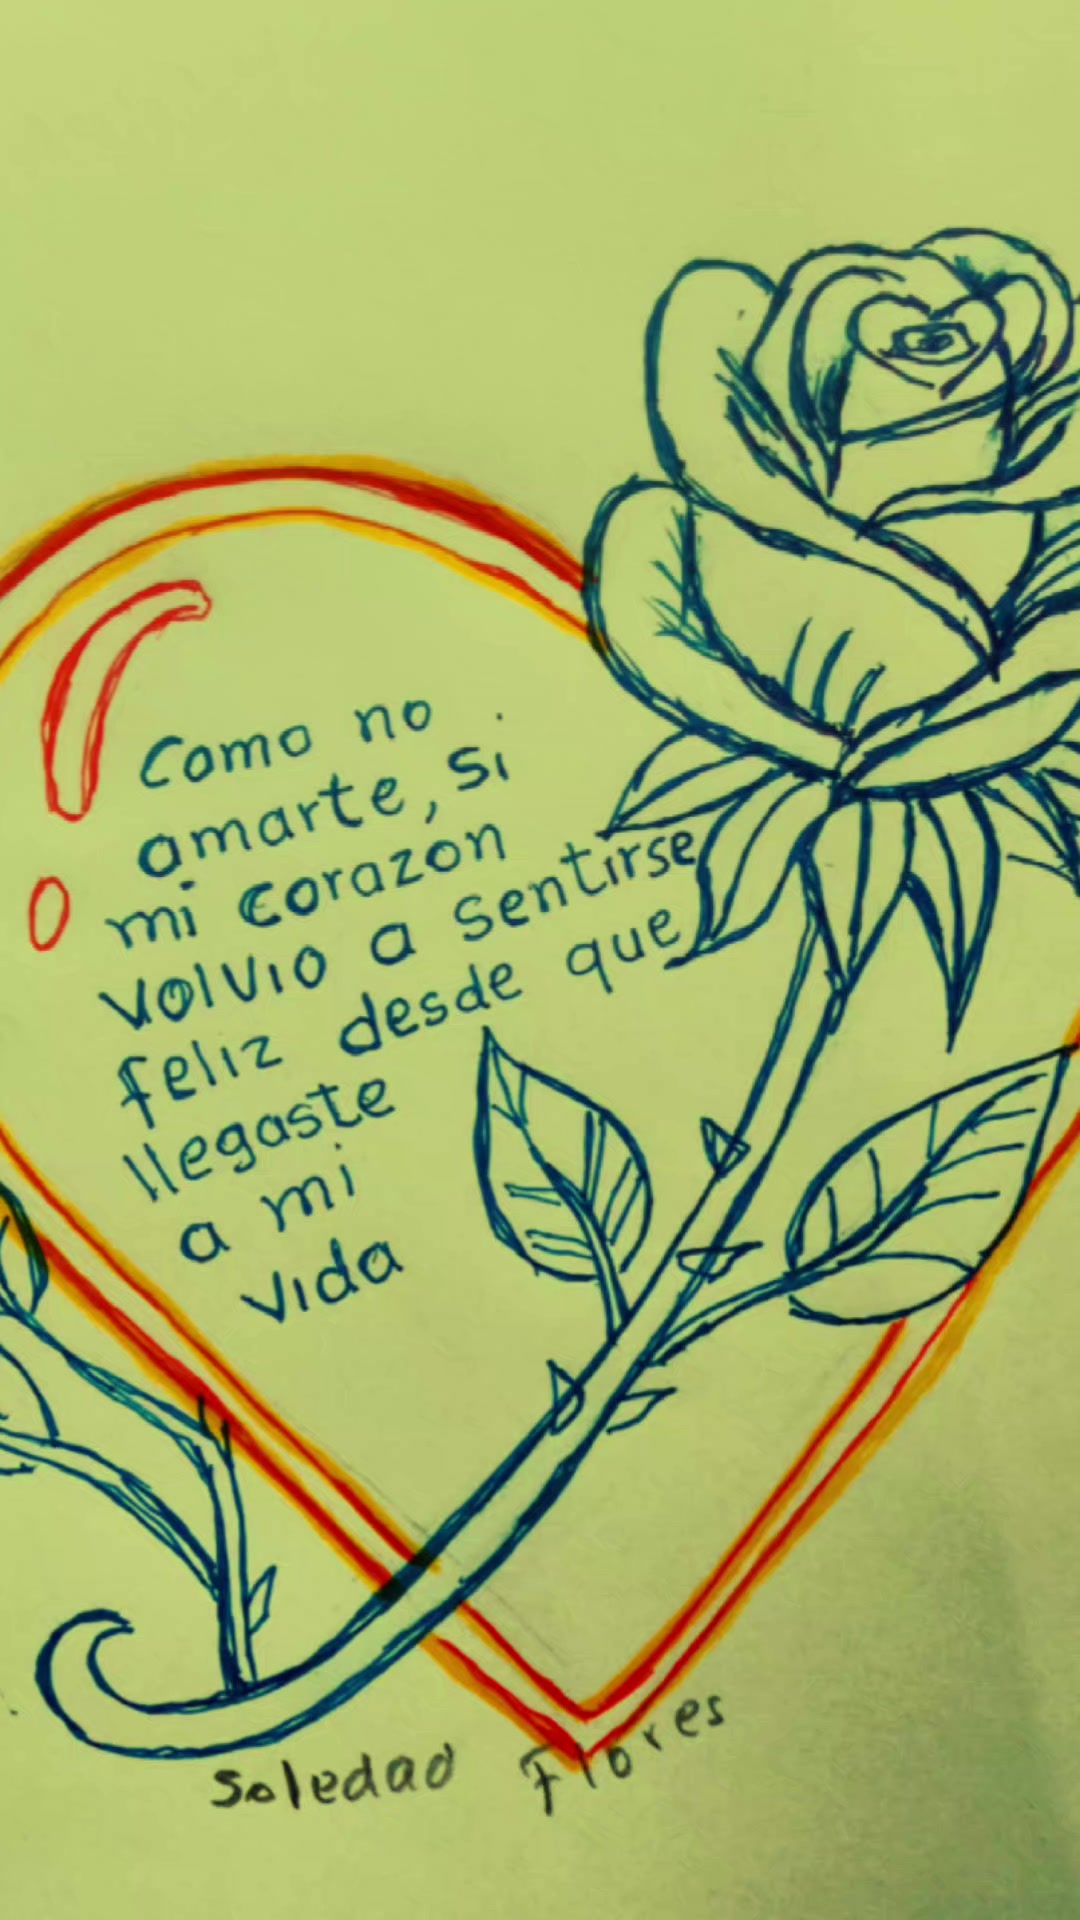 Como no
amarte, si
mi corazon
volvio a sentirse
feliz desde que
llegaste
a mi
vida
Soledad Flores